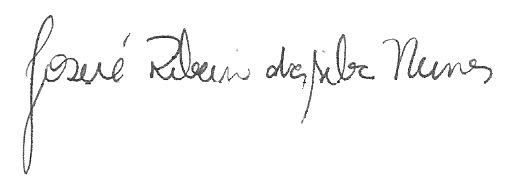 Josué Ribeiro da Silva Nunes